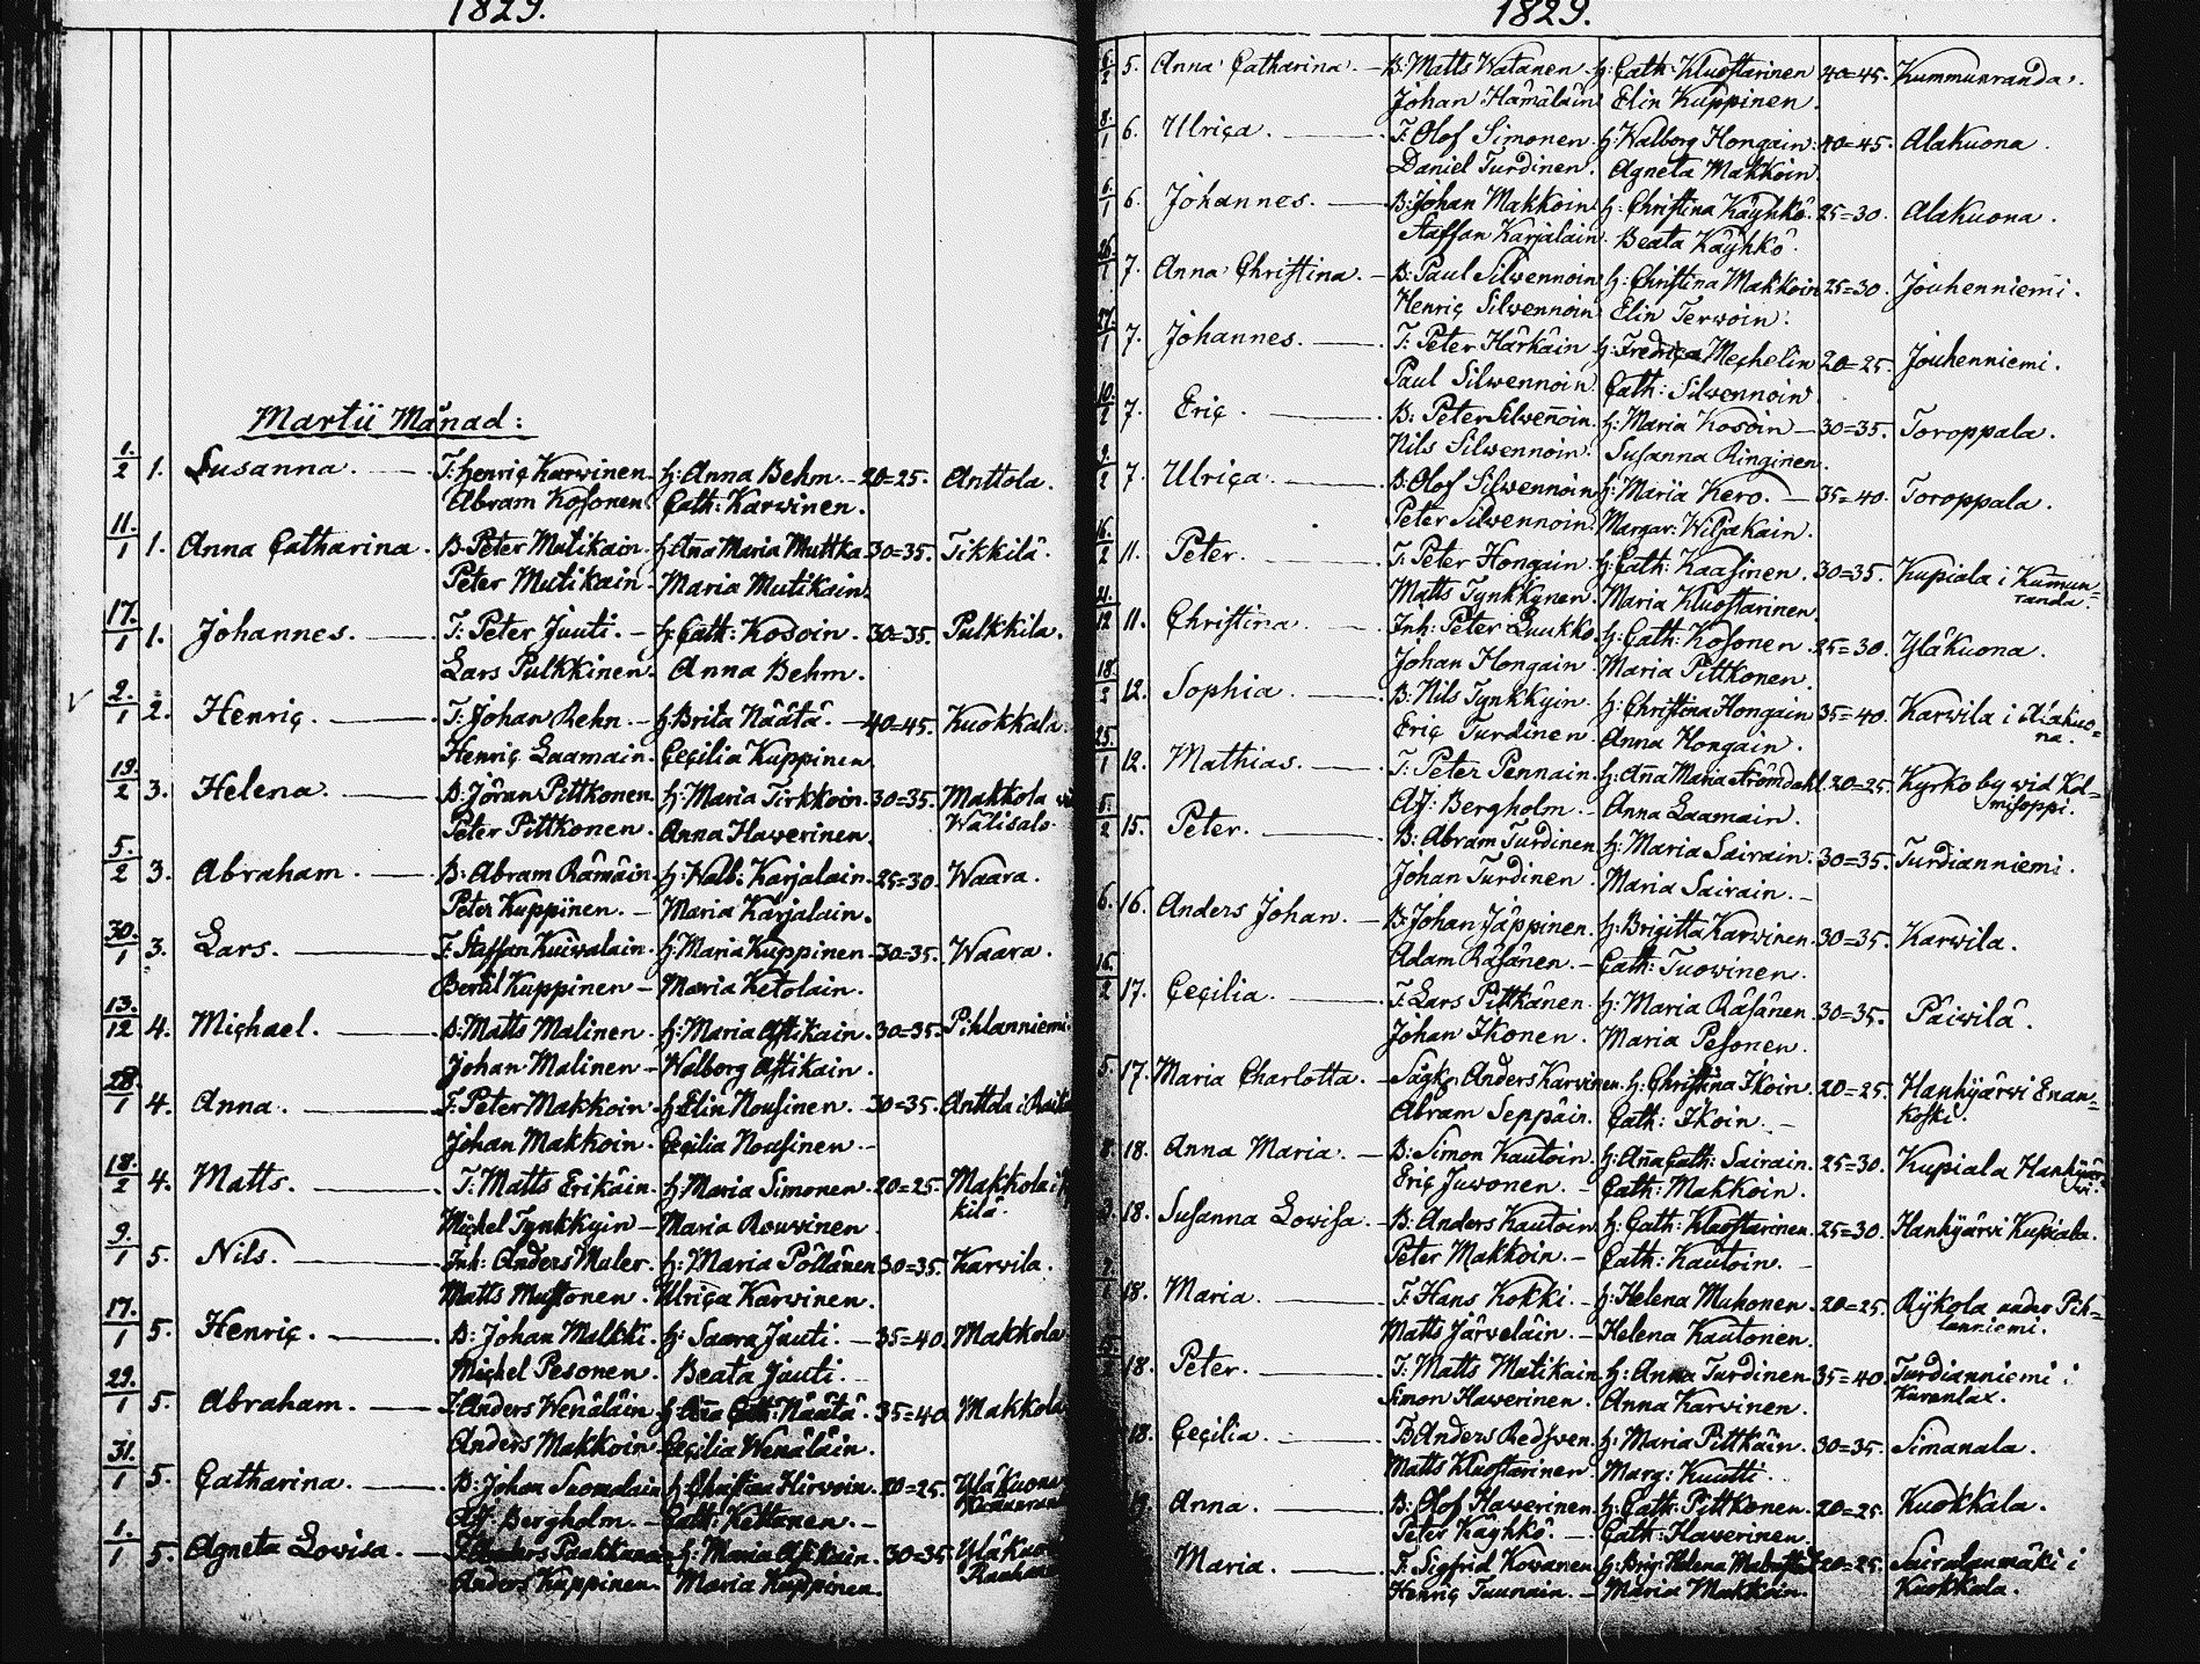 1829.
Martii Månad:
1./2 1. Susanna. T: Henriç Karwinen. h: Anna Behm. 20=25. Anttola.
Abram Kosonen. Cath: Karwinen.
11./1 1. Anna Catharina. B: Peter Mutikain. h: Aña Maria Muttka. 30=35. Tikkilä.
Peter Mutikain. Maria Mutikain.
17./1 1. Johannes. T: Peter Juuti. h: Cath: Kosoin. 30=35. Pulkkila.
Lars Pulkkinen. Anna Behm.
2./1 2. Henriç. T: Johan Rehn. h: Brita Näätä. 40=45. Kuokkala.
Henriç Laamain. Ceçilia Kuppinen
19./2 3. Helena. B: Jöran Pittkonen. h: Maria Tirkkoin. 30=35. Makkola
Peter Pittkonen. Anna Hawerinen. Wälisalo
5./2 3. Abraham. B: Abram Rämäin. h: Walb: Karjalain. 25=30. Waara.
Peter Kuppinen. Maria Karjalain.
30./1 3. Lars. T: Staffan Kuiwalain. h: Maria Kuppinen. 30=35. Waara.
Bertil Kuppinen Maria Ketolain.
13./12 4. Miçhael. B: Matts Malinen. h: Maria Astikain. 30=35. Pihlanniemi.
Johan Malinen Walborg Astikain.
28./1 4. Anna. T: Peter Makkoin. h: Elin Nousinen. 30=35. Anttola i
Johan Makkoin. Ceçilia Nousinen
18./2 4. Matts. T: Matts Erikäin. h: Maria Simonen. 20=25. Makkola i
Miçhel Tynkkyin Maria Rouwinen kilä.
9./1 5. Nils. Inh: Anders Maler. h: Maria Pöllänen 30=35. Karwila.
Matts Mustonen. Ulriça Karwinen.
17./1 5. Henriç. B: Johan Malkki. h: Saara Juuti. 35=40. Makkola
Miçhel Pesonen. Beata Juuti.
29./1 5. Abraham. T: Anders Wenäläin h: Aña Cath: Näätä. 35=40. Makkola
Anders Makkoin. Ceçilia Wenäläin.
31./1 5. Catharina. B: Johan Suomalain h: Christina Hirwoin. 20=25. Yläkuona
A.J: Bergholm. Cath: Kettanen.
1./1 5. Agneta Lovisa. T: Anders Paakkanen h: Maria Astikain. 30=35. Yläkuo
Anders Kuppinen. Maria Kuppinen.
1829.
6/2 5. Anna Catharina. B: Matts Watanen. h: Cath: Kluostarinen 40=45. Kummunranda.
Johan Hämäläin Elin Kuppinen.
8./1 6. Ulriça. T: Olof Simonen. h: Walborg Hongain. 40=45. Alakuona.
Daniel Turdinen. Agneta Makkoin.
6./1 6. Johannes. B: Johan Makkoin. h: Christina Käyhkö. 25=30. Alakuona.
Staffan Karjalain. Beata Käyhkö.
26./1 7. Anna Christina. B: Paul Silwennoin h: Christina Makkoin 25=30. Jouhenniemi.
Henriç Silwennoin Elin Terwoin.
27./1 7. Johannes. T: Peter Härkäin h: Fredriça Meçhelin 20=25. Jouhenniemi.
Paul Silwennoin. Cath: Silwennoin
10. 7. Eriç. B: Peter Silweñoin. h: Maria Kosoin 30=35. Toroppala.
Nils Silwennoin. Susanna Ringinen.
9./2 7. Ulriça. B: Olof Silwennoin h: Maria Kero. 35=40. Toroppala.
Peter Silwennoin. Margar: Wiljakain.
16./2 11. Peter. T: Peter Hongain. h: Cath: Kaasinen. 30=35. Kupiala i Kum̄un=
Matts Tynkkynen. Maria Kluostarinen. randa.
21./12 11. Christina. Inh: Peter Luukko. h: Cath: Kosonen. 25=30. Yläkuona.
Johan Hongain. Maria Pittkonen.
18./2 12. Sophia. B: Nils Tynkkyin. h: Christina Hongain 35=40. Karwila i Alakuo=
Eriç Turdinen. Anna Hongain. na.
25./1 12. Mathias. T: Peter Pennain. h: Aña Maria Strömdahl. 20=25. Kyrko by wid Kol=
A.J: Bergholm. Anna Laamain. misoppi.
5./2 15. Peter. B: Abram Turdinen. h: Maria Sairain. 30=35. Turdianniemi.
Johan Turdinen. Maria Sairain.
6. 16. Anders Johan. B: Johan Jäppinen. h: Brigitta Karwinen. 30=35. Karwila.
Adam Räsänen. Cath: Tuowinen.
16./2 17. Ceçilia. T: Lars Pittkänen. h: Maria Räsänen 30=35. Päiwilä.
Johan Ikonen. Maria Pesonen.
5. 17. Maria Charlotta. Sågk: Anders Karwinen. h: Christina Ikoin. 20=25. Hanhijärwi Enan=
Abram Seppäin. Cath: Ikoin. koski.
8. 18. Anna Maria. B: Simon Kautoin. h: Aña Cath: Sairain. 25=30. Kupiala Hanhijär
Eriç Juwonen. Cath: Makkoin. wi.
18. Susanna Lowisa. B: Anders Kautoin h: Cath: Kluostarinen. 25=30. Hanhijärwi Kupiala.
Peter Makkoin. Cath: Kautoin.
18. Maria. T: Hans Kokki. h: Helena Muhonen. 20=25. Rykola under Pih=
Matts Järweläin. Helena Kautonen. lanniemi.
18. Peter. T: Matts Matikain. h: Anna Turdinen. 35=40. Turdianniemi i
Simon Hawerinen. Anna Karwinen. Kurenlax.
18. Ceçilia. Anders Redsven. h: Maria Pittkäin. 30=35. Simanala.
Matts Kluostarinen. Marg: Kuutti.
19. Anna. B: Olof Hawerinen. h: Cath: Pittkonen. 20=25. Kuokkala.
Peter Käyhkö. Cath: Hawerinen.
Maria. T: Sigfrid Kowanen. h: Brig: Helena 20=25. Sairalanmäki i
Henriç Tuunain. Maria Makkoin. Kuokkala.